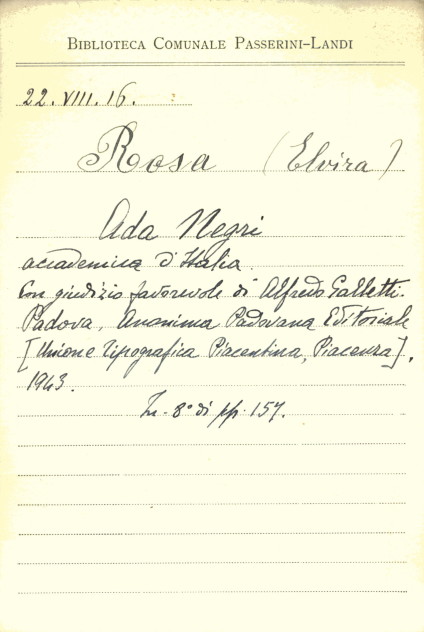 BIBLIOTECA COMUNALE PASSERINI-LANDI
22. VIII. 16.
Rosa (Elvira)
Ada Negri
accademica d'Italia.
Con giudizio favorevole di Alfredo Galletti.
Padova, Anonima Padovana Editoriale
[Unione Tipografica Piacentina, Piacenza],
1943.
In-8° di pp. 157.